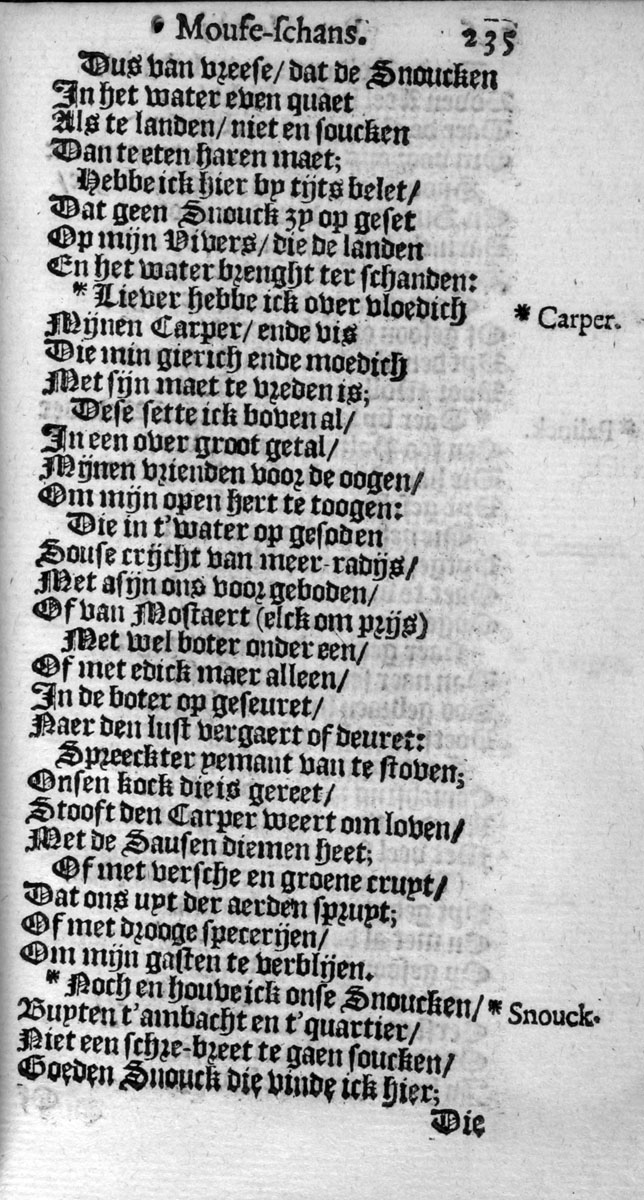 Moufe-ſchans. 235
Dus van vreese/ dat de Snoucken
In het water even quaet
Als te landen/ niet en soucken
Dan te eten haren maet;
Hebbe ick hier by tijts belet/
Dat geen Snouck zy op geset
Op mijn Vivers/ die de landen
En het water brenght ter schanden:
* Liever hebbe ick over vloedich * Carper.
Mijnen Carper/ ende vis
Die min gierich ende moedich
Met sijn maet te vreden is;
Dese sette ick boven al/
In een over groot getal/
Mijnen vrienden voor de oogen/
Om mijn open hert te toogen:
Die in t'water op gesoden
Souse crijcht van meer-radijs/
Met asijn ons voor geboden/
Of van Mostaert (elck om prijs)
Met wel boter onder een/
Of met edick maer alleen/
In de boter op geseuret/
Naer den lust vergaert of deuret:
Spreeckter yemant van te stoven;
Onsen kock die is gereet/
Stooft den Carper weert om loven/
Met de Sausen diemen heet;
Of met versche en groene cruyt/
Dat ons uyt der aerden spruyt;
Of met drooge specerijen/
Om mijn gasten te verblijen.
* Noch en houve ick onse Snoucken/ * Snouck.
Buyten t'ambacht en t'quartier/
Niet een schre-breet te gaen soucken/
Goeden Snouck die vinde ick hier;
Die